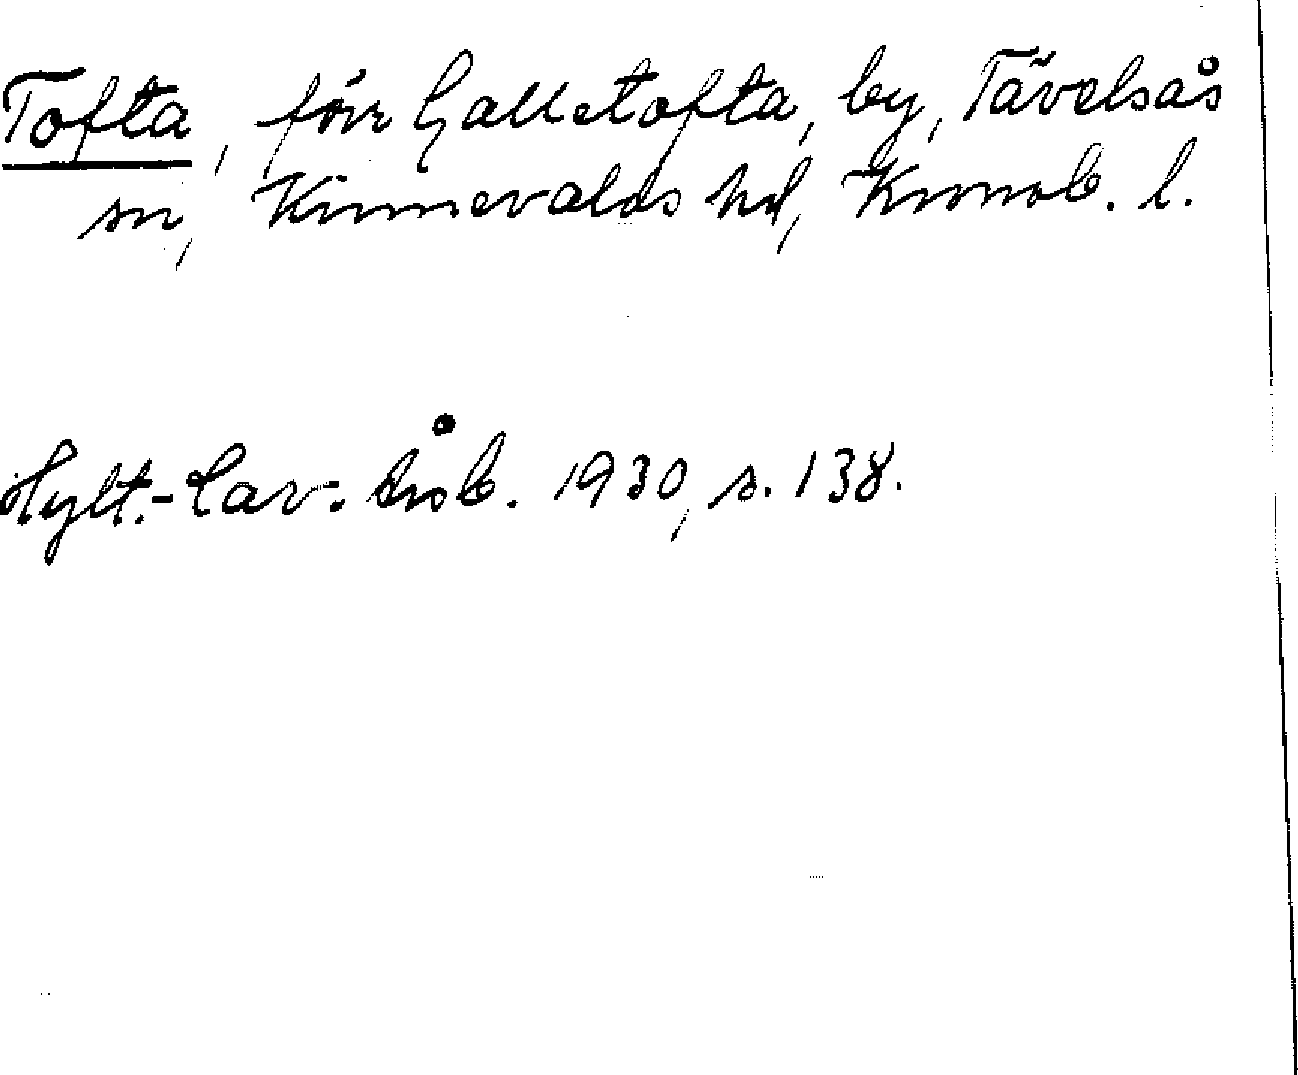 Tofta, förr Galletofta, by, Tävelsås
sn, Kinnevalds hd, Kronob. l.
Hylt.-Cav. årsb. 1930, s. 138.